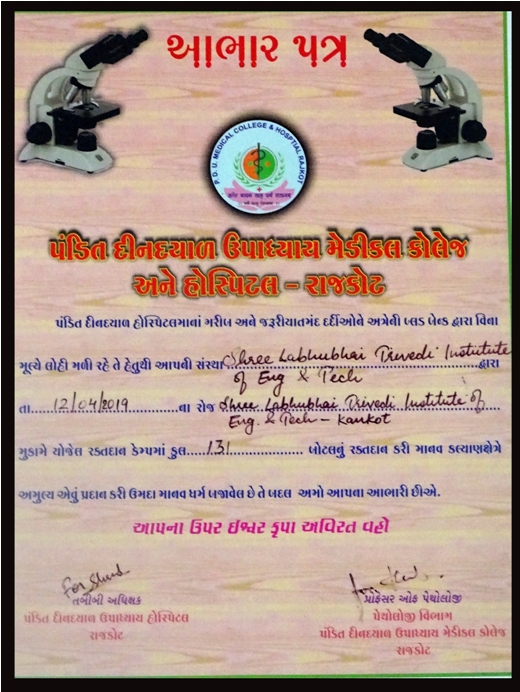 આભાર પત્ર
P. D. U. MEDICAL COLLEGE & HOSPTIAL RAJKOT
પંડિત દીનદયાળ ઉપાધ્યાય મેડીકલ કોલેજ
અને હોસ્પિટલ – રાજકોટ
પંડિત દીનદયાળ હોસ્પિટલમાનાં ગરીબ અને જરૂરીયાતમંદ દર્દીઓને અત્રેની બ્લડ બેન્ક દ્વારા વિના
મૂલ્યે લોહી મળી રહે તે હેતુથી આપની સંસ્થા Shree Labhubhai Trivedi Institute દ્વારા
of Eng & Tech
તા. 12/04/2019 ના રોજ Shree Labhubhai Trivedi Institute of
Eng. & Tech – Kankot
મુકામે યોજેલ રક્તદાન કેમ્પમાં કુલ 131 બોટલનું રક્તદાન કરી માનવ કલ્યાણક્ષેત્રે
અમુલ્ય એવું પ્રદાન કરી ઉમદા માનવ ધર્મ બજાવેલ છે તે બદલ અમો આપના આભારી છીએ.
આપના ઉપર ઈશ્વર કૃપા અવિરત વહો
તબીબી અધિક્ષક
પંડિત દીનદયાળ ઉપાધ્યાય હોસ્પિટલ
રાજકોટ
પ્રોફેસર ઓફ પેથોલોજી
પેથોલોજી વિભાગ
પંડિત દીનદયાળ ઉપાધ્યાય મેડીકલ કોલેજ
રાજકોટ